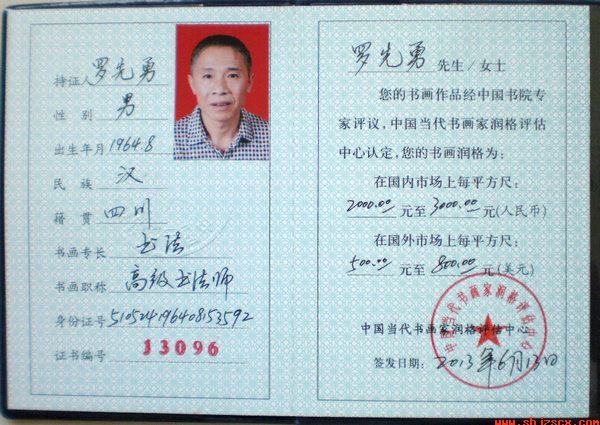 持证人 罗先勇
性别 男
出生年月 1964.8
民族 汉
籍贯 四川
书画专长 书法
书画职称 高级书法师
身份证号 510524196408153592
证书编号 13096
罗先勇 先生/女士
您的书画作品经中国书院专
家评议，中国当代书画家润格评估
中心认定，您的书画润格为：
在国内市场上每平方尺：
2000.00 元至 3000.00 元(人民币)
在国外市场上每平方尺：
500.00 元至 800.00 元(美元)
中国当代书画家润格评估中心
中国当代书画家润格评估中心
签发日期：2013年6月13日
www.shjzscx.com